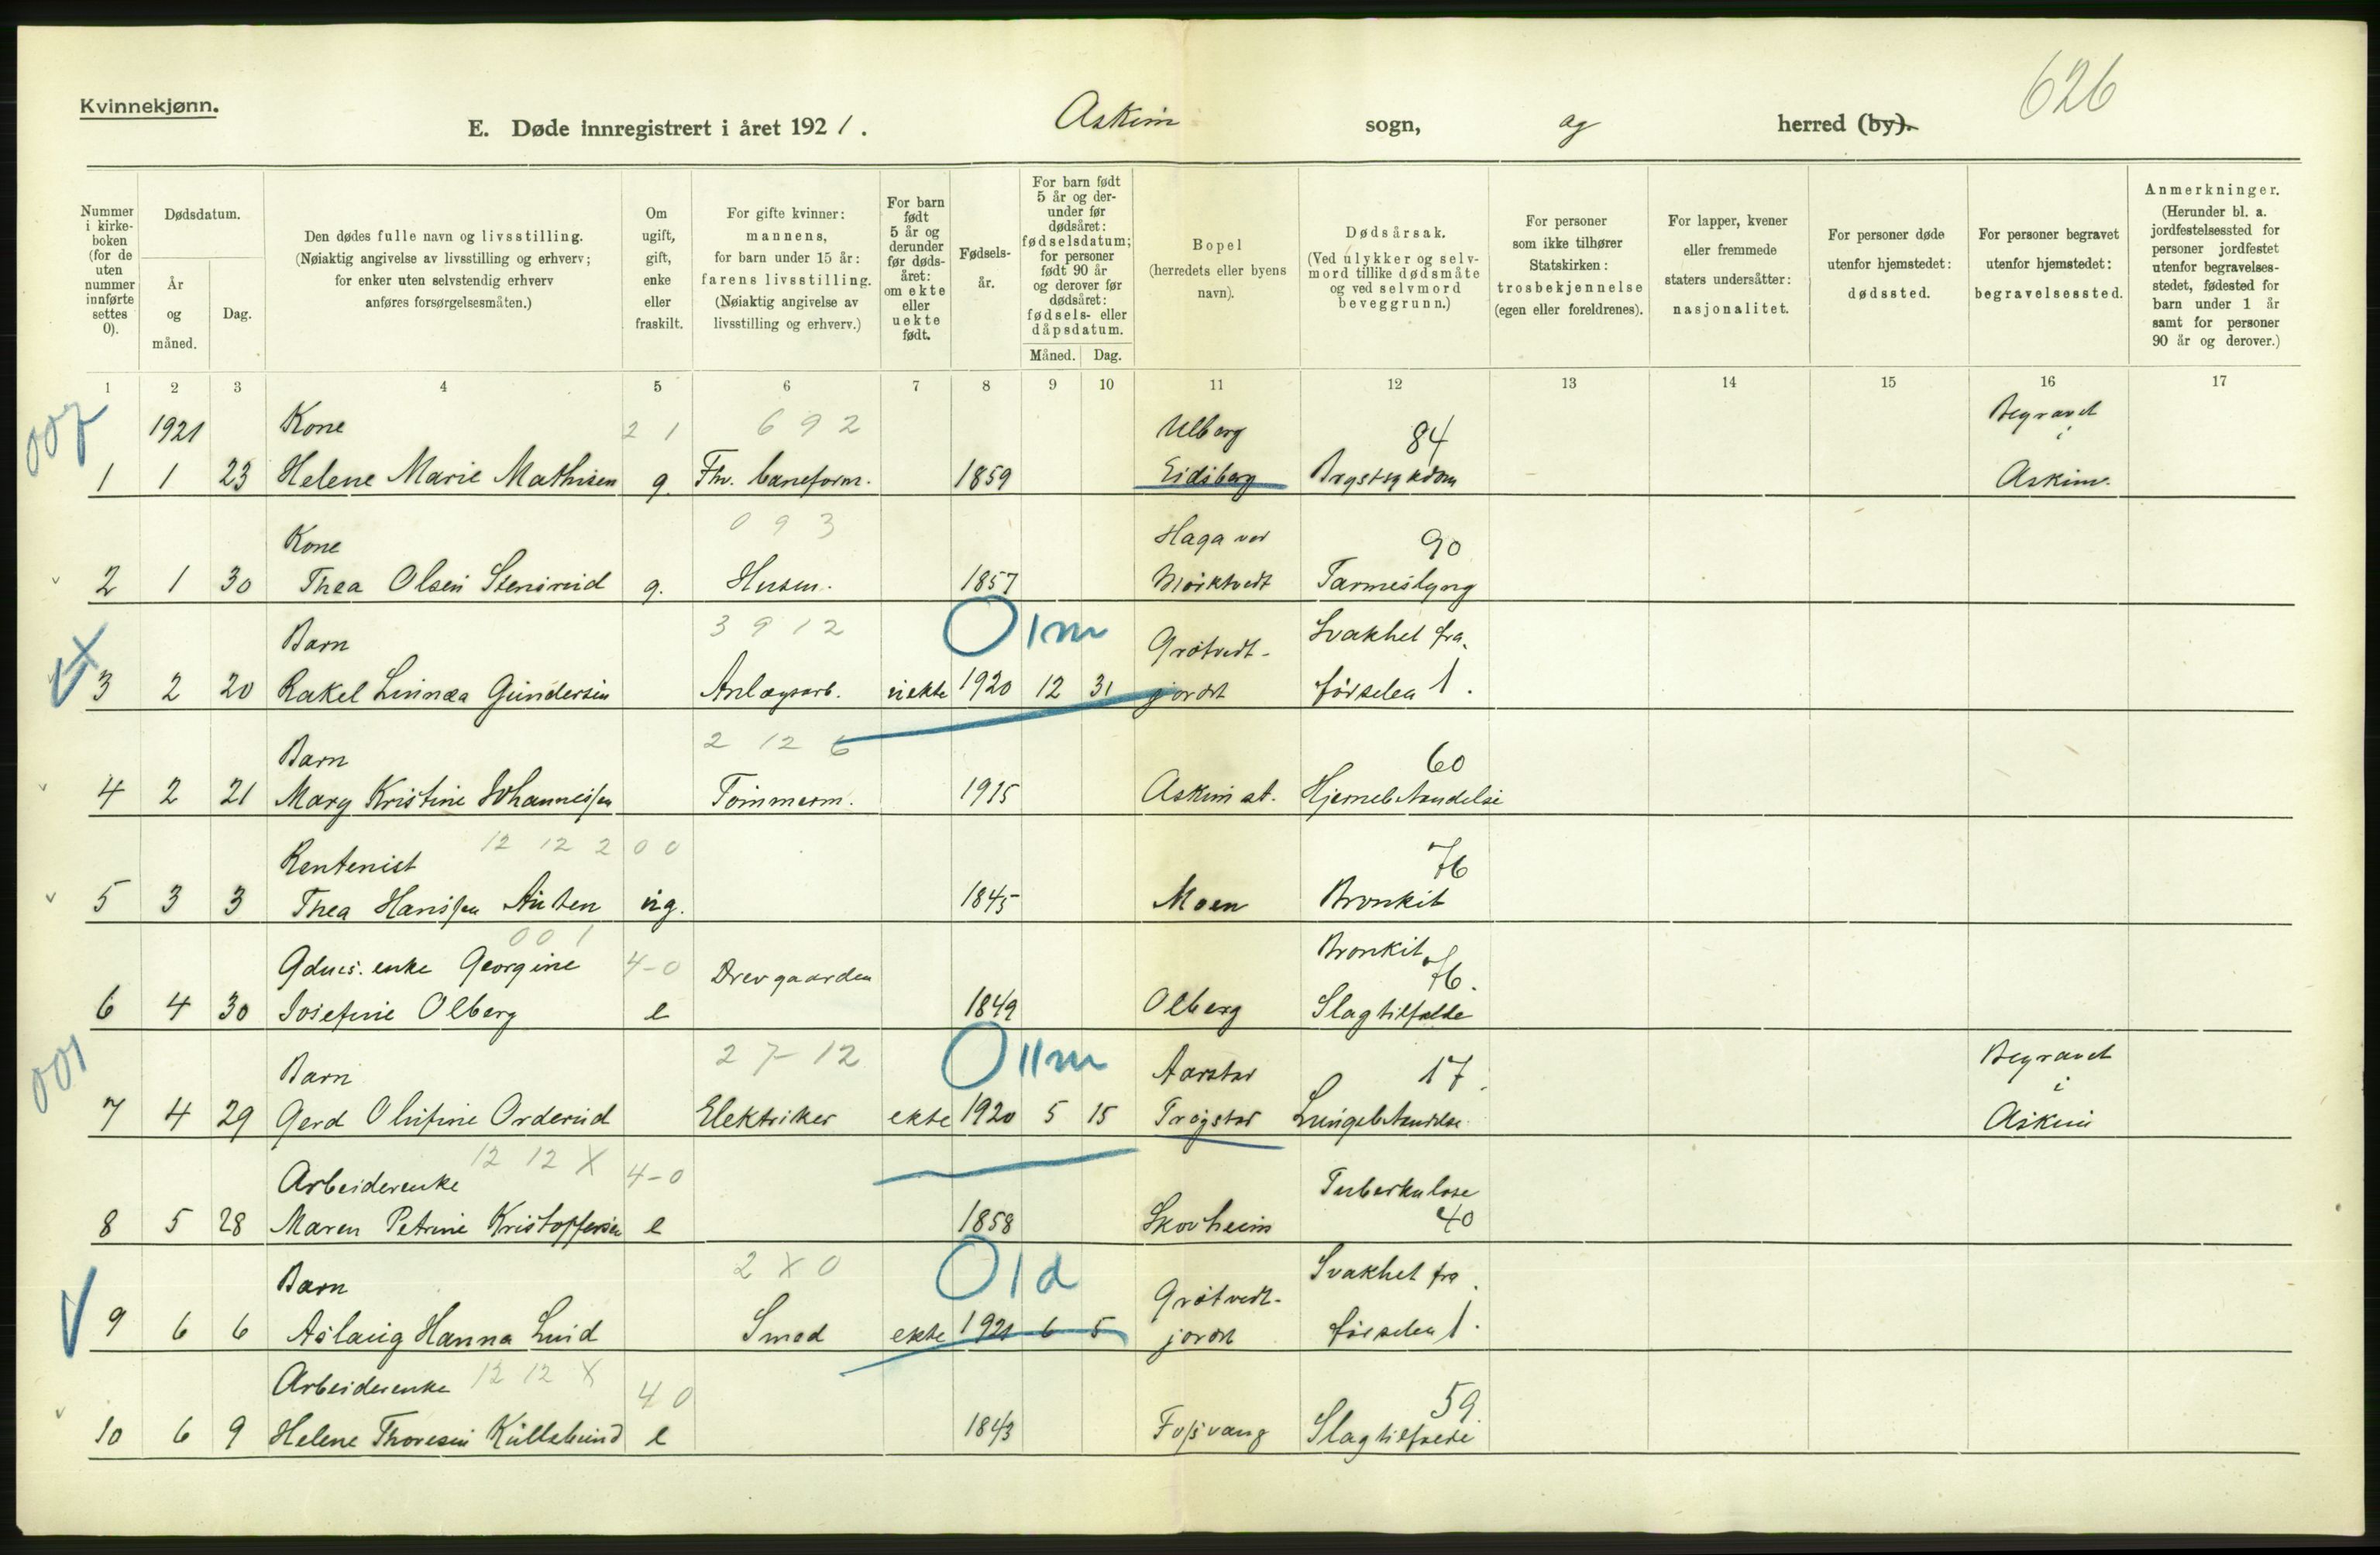 626
Kvinnekjønn.
E. Døde innregistrert i året 1921. Askim sogn, og herred (by).
Nummer i kirkeboken (for de uten nummer innførte settes 0).
Dødsdatum.
År og måned.
Dag.
Den dødes fulle navn og livsstilling. (Nøiaktig angivelse av livsstilling og erhverv; for enker uten selvstendig erhverv anføres forsørgelsesmåten.)
Om ugift, gift, enke eller fraskilt.
For gifte kvinner: mannens, for barn under 15 år: farens livsstilling. (Nøiaktig angivelse av livsstilling og erhverv.)
For barn født 5 år og derunder før dødsåret: om ekte eller uekte født.
Fødselsår.
For barn født 5 år og derunder før dødsåret: fødselsdatum; for personer født 90 år og derover før dødsåret: fødsels- eller dåpsdatum.
Måned. Dag.
Bopel (herredets eller byens navn).
Dødsårsak. (Ved ulykker og selvmord tillike dødsmåte og ved selvmord beveggrunn.)
For personer som ikke tilhører Statskirken: trosbekjennelse (egen eller foreldrenes).
For lapper, kvener eller fremmede staters undersåtter: nasjonalitet.
For personer døde utenfor hjemstedet: dødssted.
For personer begravet utenfor hjemstedet: begravelsessted.
Anmerkninger. (Herunder bl. a. jordfestelsessted for personer jordfestet utenfor begravelsesstedet, fødested for barn under 1 år samt for personer 90 år og derover.)
1 2 3 4 5 6 7 8 9 10 11 12 13 14 15 16 17
007 1921 Kone 2 1 6 9 2 Ulberg 84 Begravet i
1 1 23 Helene Marie Mathisen g. Fhv. baneform. 1859 Eidsberg Brystsykdom Askim.
Kone 0 9 3 Haga ved 90
2 1 30 Thea Olsen Stensrud g. Husm. 1857 Mørktvedt Tarmeslyng
Barn 3 9 12 0 1 m Grøtvedt- Svakhet fra
3 2 20 Rakel Linnæa Gundersen Anlægsarb. uekte 1920 12 31 jordet fødselen 1.
Barn 2 12 6 60
4 2 21 Mary Kristine Johannessen Tømmerm. 1915 Askim st. Hjernebetændelse
Rentenist 12 12 2 0 0 76
5 3 3 Thea Hanssen Auten ug. 1845 Moen Bronkit
0 0 1
Gdms. enke Georgine 4-0 Drev gaarden Bronkit 76.
6 4 30 Josefine Olberg e 1849 Olberg Slagtilfælde
001 Barn 2 7-12 0 11 m Aarstad 17. Begravet i
7 4 29 Gerd Olufine Orderud Elektriker ekte 1920 5 15 Trøgstad Lungebetændelse Askim
Arbeiderenke 12 12 X 4-0 Tuberkulose
8 5 28 Maren Petrine Kristoffersen e 1858 Skovheim 40
Barn 2 X 0 0 1 d Grøtvedt- Svakhet fra
9 6 6 Aslaug Hanna Lund Smed ekte 1921 6 5 jordet fødselen 1.
Arbeiderenke 12 12 X 4 0 59.
10 6 9 Helene Thoresen Kullebund e 1843 Fossvang Slagtilfælde